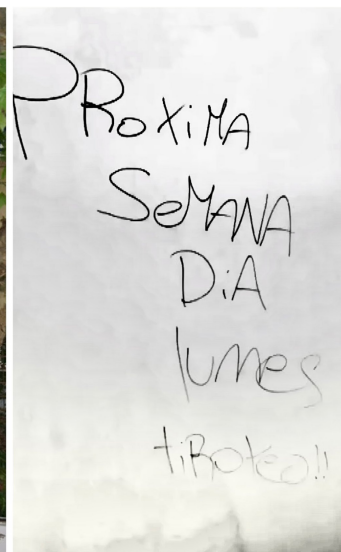 PRoXiMA
SeMANA
DiA
lunes
tiRoteo!!